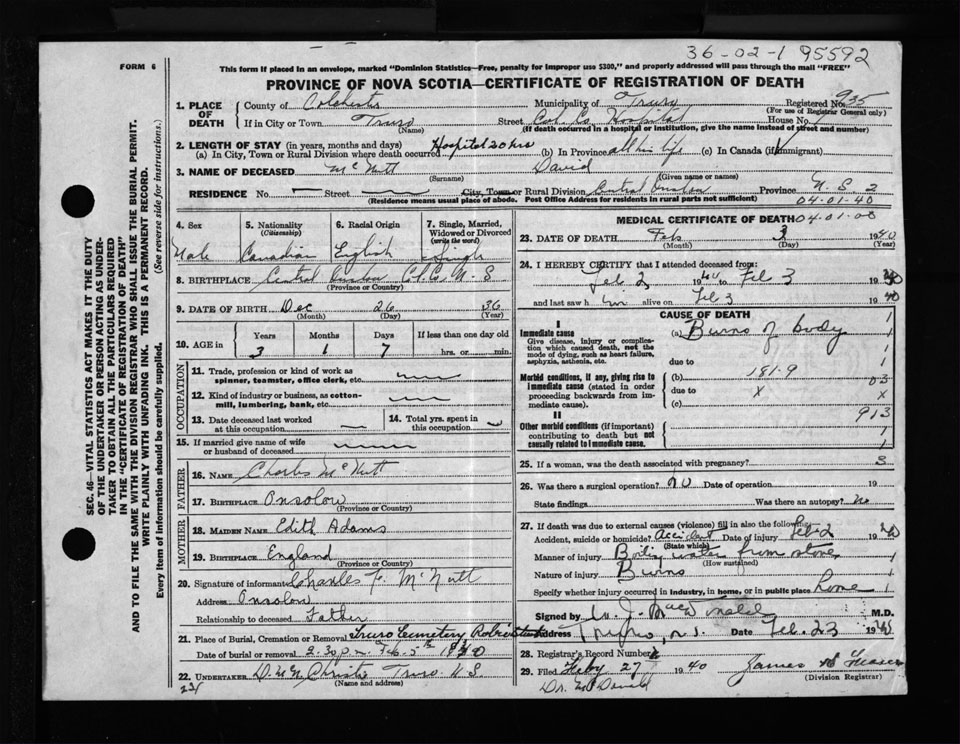 36-02-1 95592
FORM 6
This form if placed in an envelope, marked "Dominion Statistics—Free, penalty for improper use $300," and properly addressed will pass through the mail "FREE"
PROVINCE OF NOVA SCOTIA—CERTIFICATE OF REGISTRATION OF DEATH
SEC. 46—VITAL STATISTICS ACT MAKES IT THE DUTY
OF THE UNDERTAKER OR PERSON ACTING AS UNDER-
TAKER TO OBTAIN ALL THE PARTICULARS REQUIRED
IN THE "CERTIFICATE OF REGISTRATION OF DEATH"
AND TO FILE THE SAME WITH THE DIVISION REGISTRAR WHO SHALL ISSUE THE BURIAL PERMIT.
WRITE PLAINLY WITH UNFADING INK. THIS IS A PERMANENT RECORD.
Every item of information should be carefully supplied. (See reverse side for instructions.)
1. PLACE OF DEATH County of Colchester Municipality of Truro Registered No. 935
(For use of Registrar General only)
If in City or Town Truro (Name) Street Col. Co. Hospital House No.
(If death occurred in a hospital or institution, give the name instead of street and number)
2. LENGTH OF STAY (in years, months and days)
(a) In City, Town or Rural Division where death occurred Hospital 20 hrs (b) In Province all his life (c) In Canada (if immigrant)
3. NAME OF DECEASED McNutt (Surname) David (Given name or names)
RESIDENCE No. Street City, Town or Rural Division Central Onslow Province N.S. 2
(Residence means usual place of abode. Post Office Address for residents in rural parts not sufficient) 04-01-40
4. Sex Male
5. Nationality (Citizenship) Canadian
6. Racial Origin English
7. Single, Married, Widowed or Divorced (write the word) Single
8. BIRTHPLACE Central Onslow Col. Co. N-S
(Province or Country)
9. DATE OF BIRTH Dec (Month) 26 (Day) 36 (Year)
10. AGE in Years 3 Months 1 Days 7 If less than one day old hrs. or min.
OCCUPATION
11. Trade, profession or kind of work as spinner, teamster, office clerk, etc.
12. Kind of industry or business, as cotton-mill, lumbering, bank, etc.
13. Date deceased last worked at this occupation
14. Total yrs. spent in this occupation
15. If married give name of wife or husband of deceased
FATHER
16. NAME Charles McNutt
17. BIRTHPLACE Onsolow
(Province or Country)
MOTHER
18. MAIDEN NAME Edith Adams
19. BIRTHPLACE England
(Province or Country)
20. Signature of informant Charles F. McNutt
Address Onsolow
Relationship to deceased Father
21. Place of Burial, Cremation or Removal Truro Cemetery Robie Street
Date of burial or removal 2.30 p.m. Feb. 5th 1940
22. UNDERTAKER Christie Truro N.S.
(Name and address)
MEDICAL CERTIFICATE OF DEATH 04-01-00
23. DATE OF DEATH Feb (Month) 3 (Day) 1940 (Year)
24. I HEREBY CERTIFY that I attended deceased from:
Feb 2 1940 to Feb 3 1940
and last saw him alive on Feb 3 1940
CAUSE OF DEATH
I
Immediate cause (a) Burns of body 1
Give disease, injury or complication which caused death, not the mode of dying, such as heart failure, asphyxia, asthenia, etc.
due to 1
Morbid conditions, if any, giving rise to immediate cause (stated in order proceeding backwards from immediate cause). (b) 181-9 03
due to x x
(c) 913
II
Other morbid conditions (if important) contributing to death but not causally related to immediate cause. 1
1
25. If a woman, was the death associated with pregnancy? 3
26. Was there a surgical operation? no Date of operation 19
State findings Was there an autopsy? no
27. If death was due to external causes (violence) fill in also the following:
Accident, suicide or homicide? Accident (State which) Date of injury Feb 2 1940
Manner of injury Boiling water from stove (How sustained) 1
Nature of injury Burns 1
Specify whether injury occurred in industry, in home, or in public place home 1
Signed by W. J. MacDonald M.D.
Address Truro, N.S. Date Feb. 23 1940
28. Registrar's Record Number
29. Filed Feby 27 1940 James
(Division Registrar)